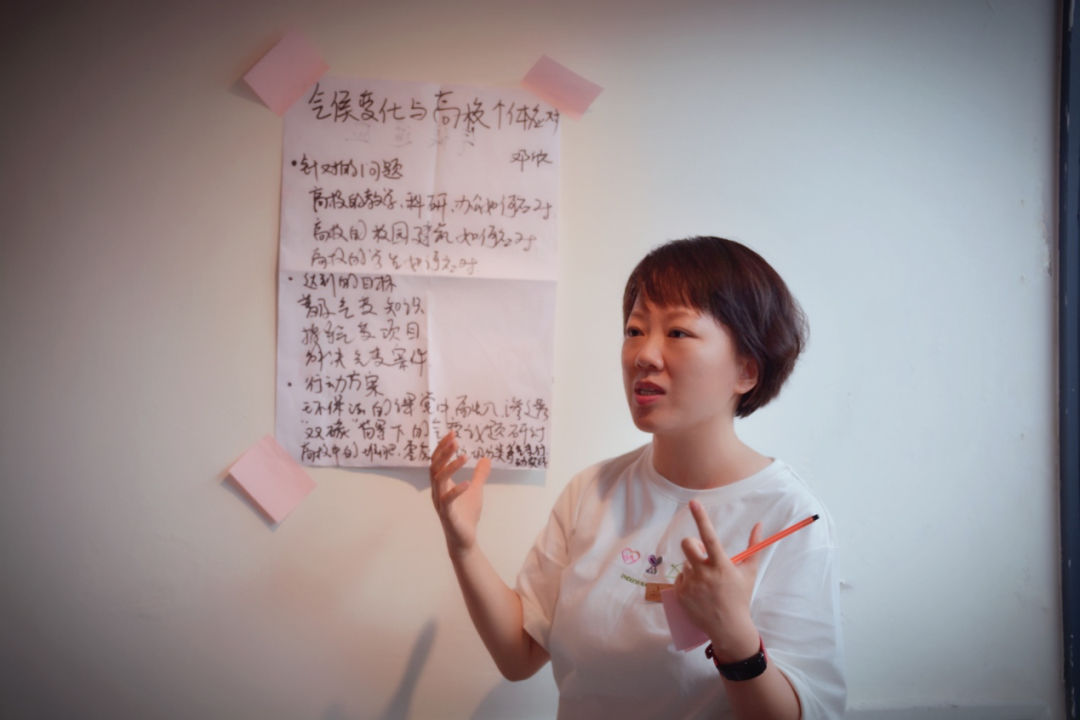 气候变化与高校个体应对
邓欣
•针对的问题
高校的教学、科研、办公如何应对
高校的校园建筑如何应对
高校的学生如何应对
•达到的目标
普及气变知识
气变项目
解决气变案件
•行动方案
环保法的课堂中
"双碳"背景下的气变议题研讨
高校中的堆肥、零废